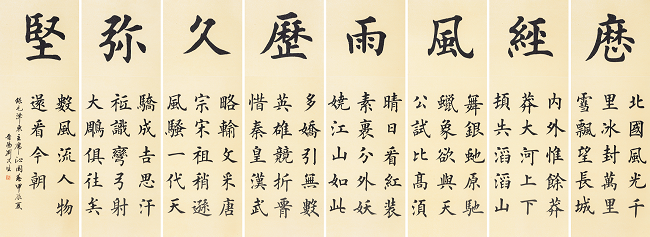 厯
北國風光千
里冰封萬里
雪飄望長城
經
内外惟餘莽
莽大河上下
頓失滔滔山
風
舞銀虵原馳
蠟象欲與天
公試比髙須
雨
晴日看紅裝
素裹分外妖
嬈江山如此
歷
多嬌引無數
英雄競折腰
惜秦皇漢武
久
略輸文采唐
宗宋祖稍遜
風騷一代天
弥
驕成吉思汗
祗識彎弓射
大鵰俱往矣
堅
數風流人物
還看今朝
録毛澤東主席沁園春甲辰夏